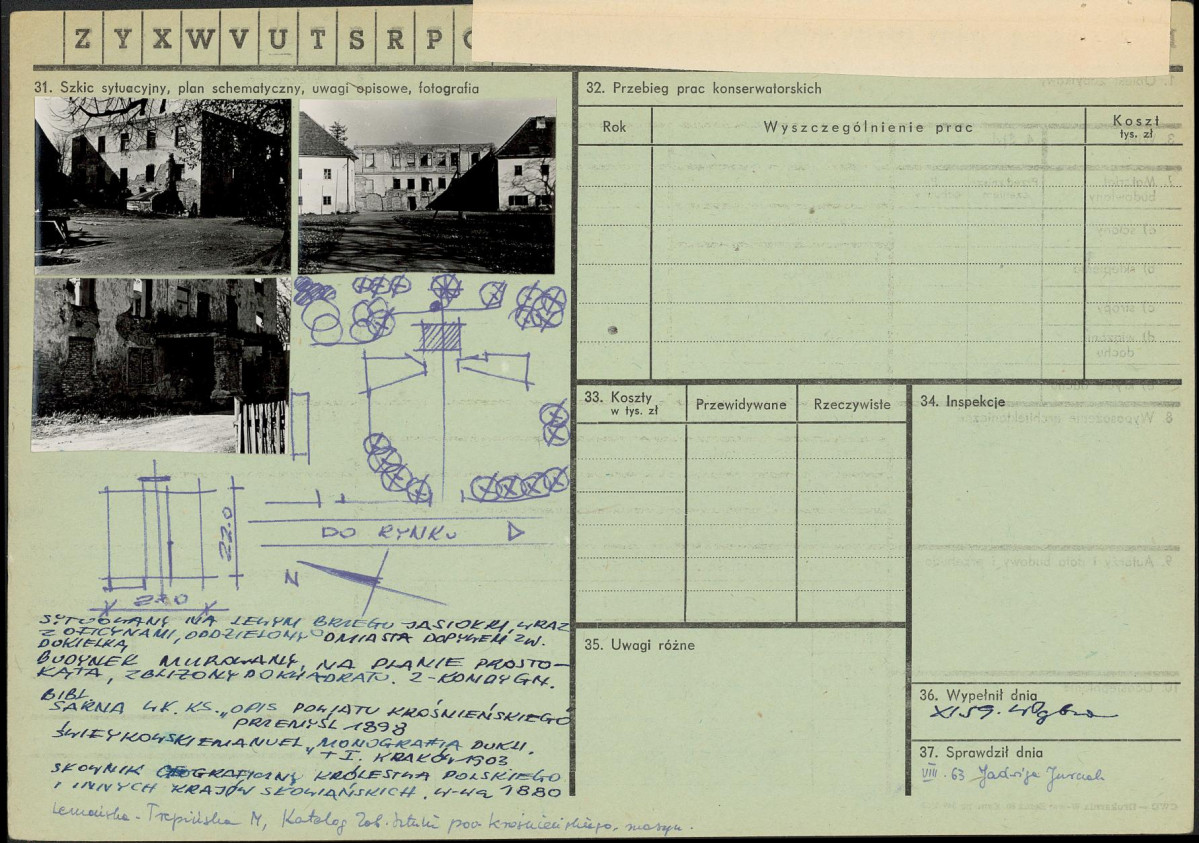 Z Y X W V U T S R P
31. Szkic sytuacyjny, plan schematyczny, uwagi opisowe, fotografia
DO RYNKU
22.0
N
22.0
SYTUOWANY NA LEWYM BRZEGU JASIOŁKI, WRAZ
Z OFICYNAMI, ODDZIELONY OD MIASTA DOPŁYWEM ZW.
DUKIEŁKĄ
BUDYNEK MUROWANY, NA PLANIE PROSTO-
KĄTA, ZBLIŻONY DO KWADRATU. 2-KONDYGN.
BIBL.
SARNA WŁ. KS. „OPIS POWIATU KROŚNIEŃSKIEGO
PRZEMYŚL 1898
ŚWIEYKOWSKI EMANUEL „MONOGRAFIA DUKLI.
T I. KRAKÓW 1903
SŁOWNIK GEOGRAFICZNY KRÓLESTWA POLSKIEGO
I INNYCH KRAJÓW SŁOWIAŃSKICH. W-WA 1880
M, Katalog Zab. Sztuki pow. krośnieńskiego, maszyn.
32. Przebieg prac konserwatorskich
Rok
Wyszczególnienie prac
Koszt
tys. zł
33. Koszty
w tys. zł
Przewidywane
Rzeczywiste
34. Inspekcje
35. Uwagi różne
36. Wypełnił dnia
XI 59.
37. Sprawdził dnia
VIII. 63 Jadwiga